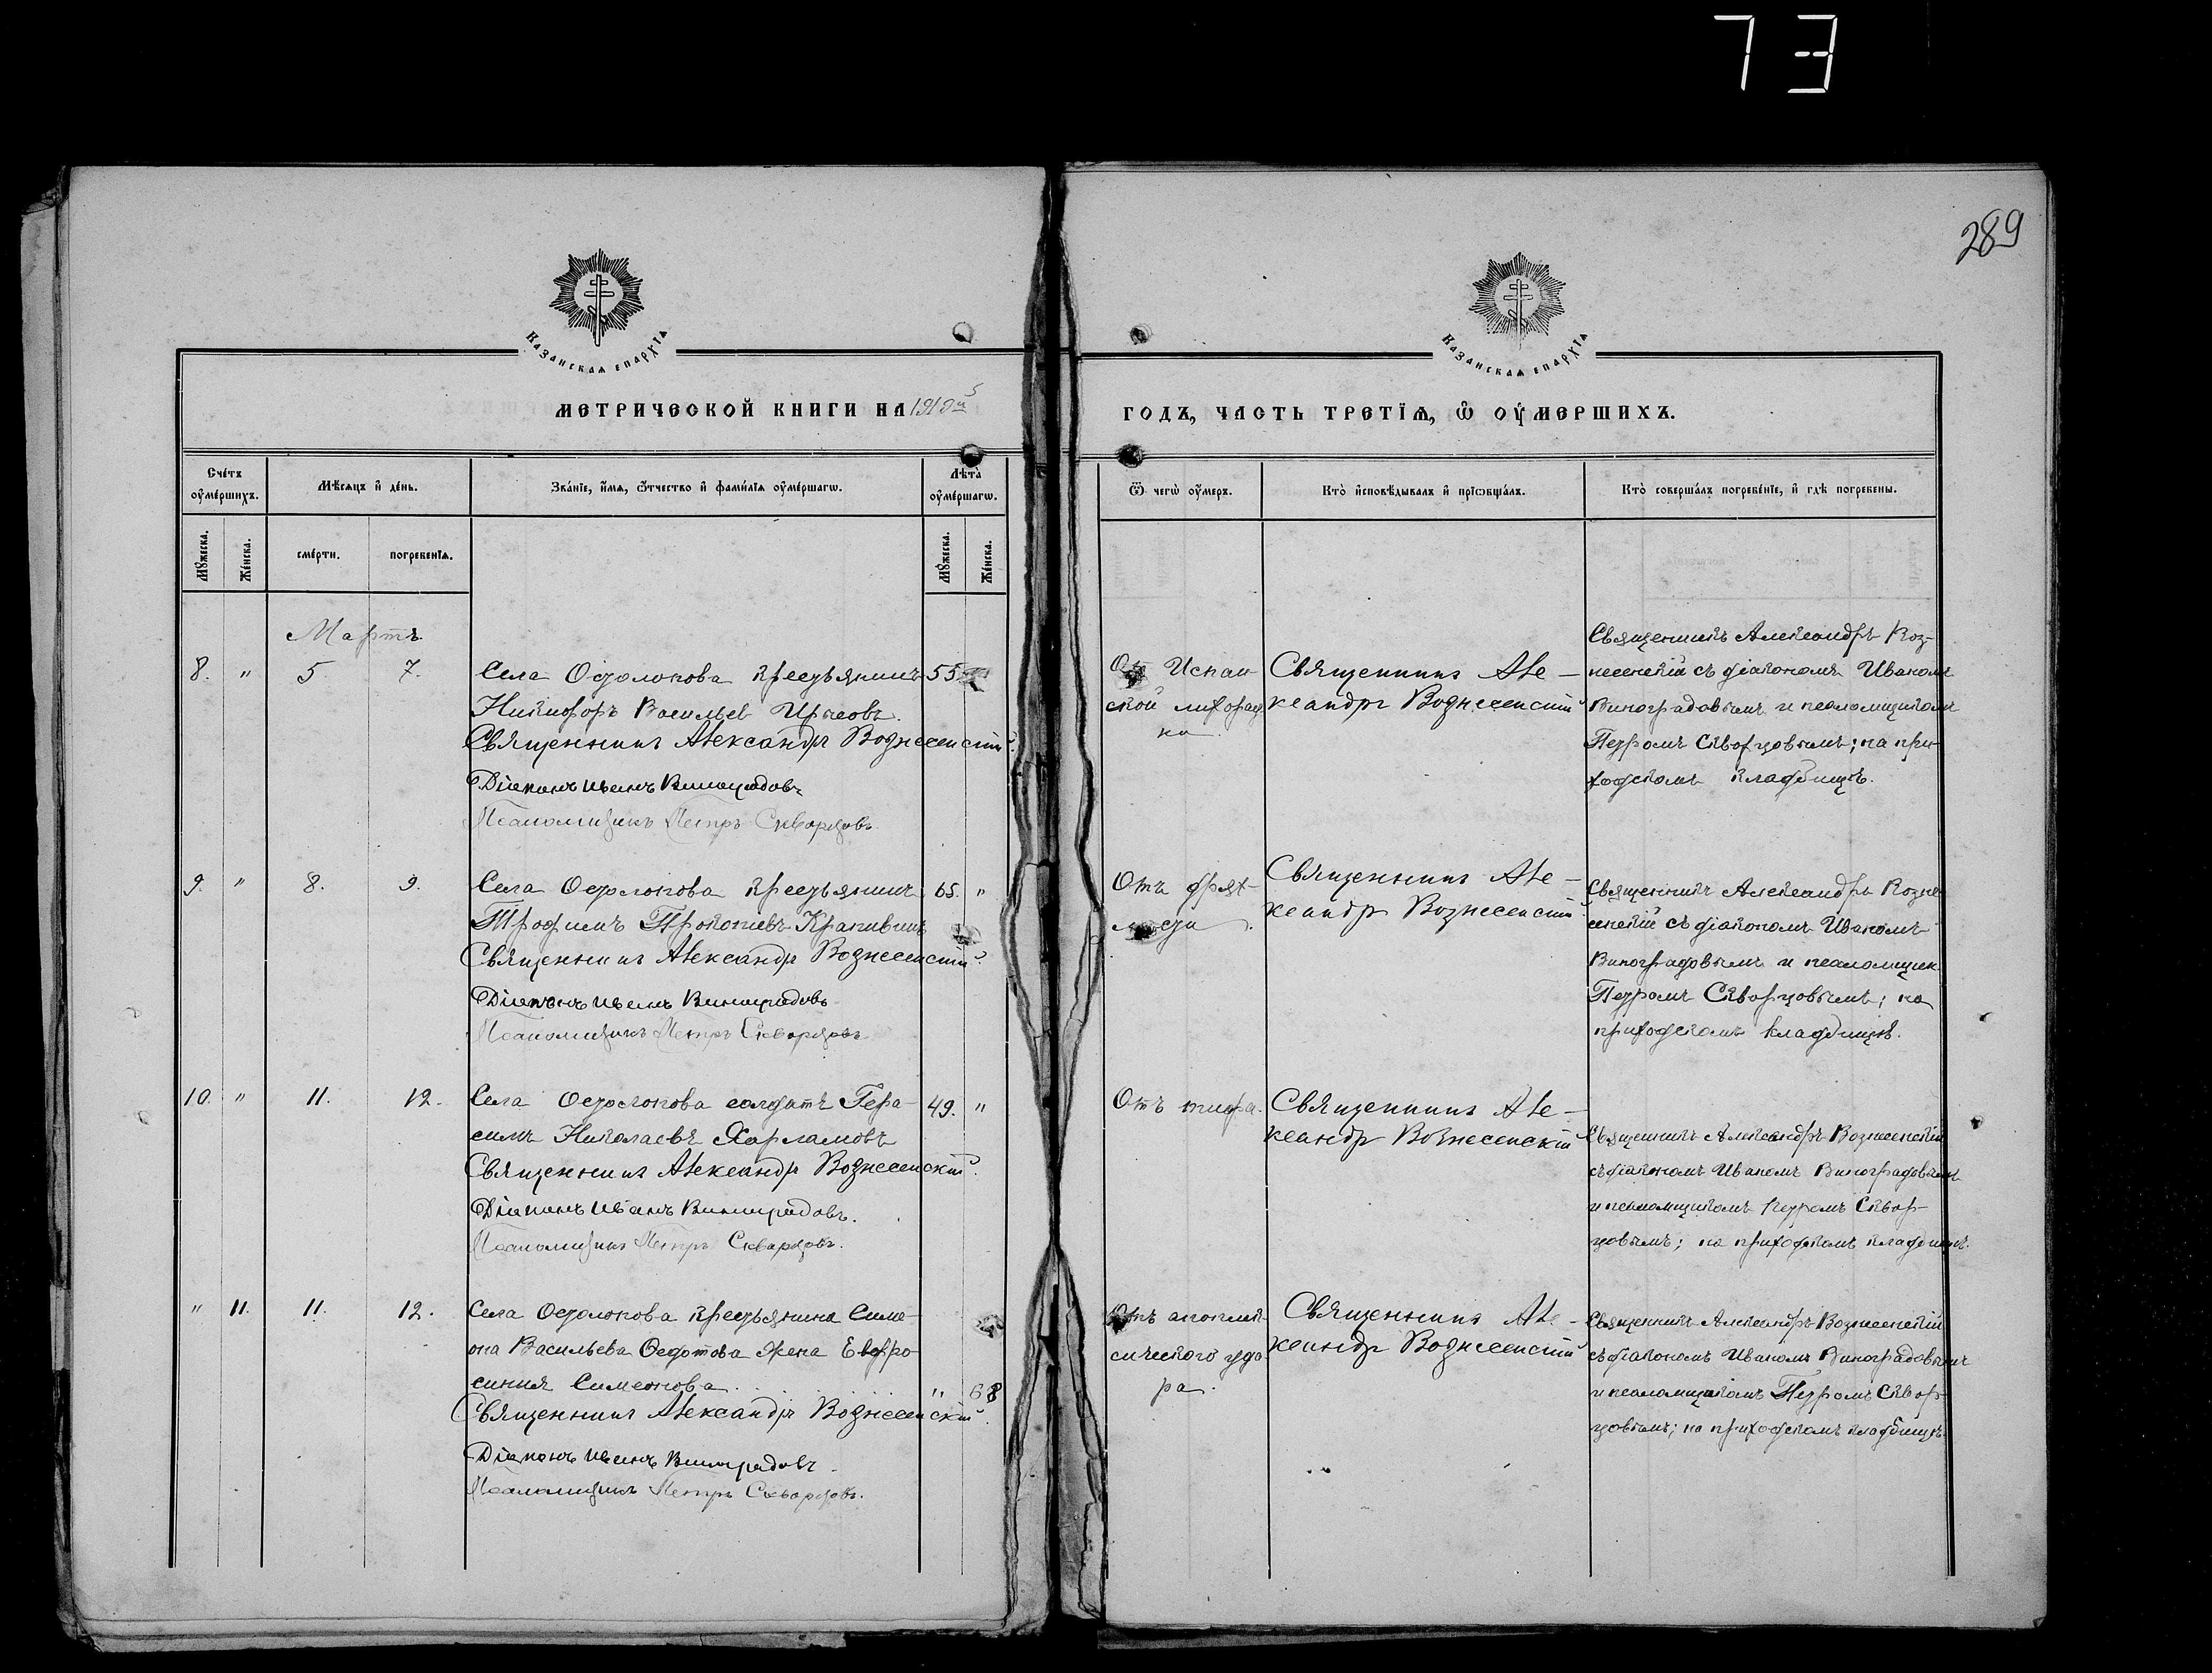 73
289
Казанская епархїя
Казанская епархїя
МЕТРИЧЕСКОЙ КНИГИ НА
ГОДЪ, ЧАСТЬ ТРЕТЇѦ, Ѽ ОУМЕРШИХЪ.
Счéтъ оу҆мéршихъ.
Мѣ́сяцъ и҆ дéнь.
Звáнїе, и҆́мя, ѻ҆́тчество и҆ фамѝлїя оу҆мéршагѡ.
Лѣ́та оу҆мéршагѡ.
Ѿ чегѡ̀ оу҆́меръ.
Ктò и҆сповѣ́дывалъ и҆ прїѡбщáлъ.
Ктò совершáлъ погребéнїе, и҆ гдѣ̀ погребены.
Мꙋ́жеска.
Жéнска.
смéрти.
погребенїѧ.
Мꙋ́жеска.
Жéнска.
Мартъ.
8. " 5. 7. Села крестьянинъ 55
Никифоръ Васильев
Священникъ Александръ Вознесенскій.
Діаконъ Иванъ Виноградовъ
Псаломщикъ Петръ Скворцовъ.
От Испан-
ской лихорад
ки
Священникъ Але-
ксандръ Вознесенскій
Священникъ Александръ Воз-
несенскій съ діакономъ Иваномъ
Виноградовымъ и псаломщикомъ
Петромъ Скворцовымъ; на при-
ходскомъ кладбищѣ.
9. " 8. 9. Села крестьянинъ 65. "
Трофимъ Прокопіевъ Крапивинъ
Священникъ Александръ Вознесенскій.
Діаконъ Иванъ Виноградовъ
Псаломщикъ Петръ Скворцовъ
Отъ
Священникъ Але-
ксандръ Вознесенскій
Священникъ Александръ Возне
сенскій съ діакономъ Иваномъ
Виноградовымъ и псаломщик.
Петромъ Скворцовымъ; на
приходскомъ кладбищѣ.
10. " 11. 12. Села солдатъ Гера-
симъ Николаевъ Харламовъ 49. "
Священникъ Александръ Вознесенскій.
Діаконъ Иванъ Виноградовъ.
Псаломщикъ Петръ Скворцовъ.
Отъ тифа.
Священникъ Але-
ксандръ Вознесенскій
Священникъ Александръ Вознесенскій
съ діакономъ Иваномъ Виноградовымъ
и псаломщикомъ Петромъ Сквор-
цовымъ; на приходскомъ кладбищѣ.
" 11. 11. 12. Села крестьянина Симе-
она Васильева Федотова жена Евфро
синия Симеонова. " 68
Священникъ Александръ Вознесенскій.
Діаконъ Иванъ Виноградовъ.
Псаломщикъ Петръ Скворцовъ.
Отъ апоплек-
сического уда
ра.
Священникъ Але-
ксандръ Вознесенскій
Священникъ Александръ Вознесенскій
съ діакономъ Иваномъ Виноградовымъ
и псаломщикомъ Петромъ Сквор-
цовымъ; на приходскомъ кладбищѣ.